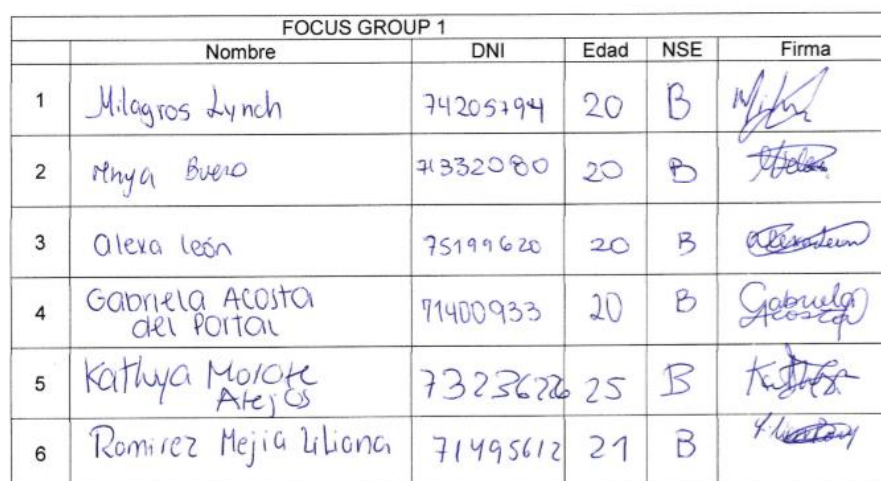 FOCUS GROUP 1
Nombre DNI Edad NSE Firma
1 Milagros Lynch 74205794 20 B
2 Buero 71332080 20 B
3 alexa león 75199620 20 B
4 Gabriela Acosta del Portal 71400933 20 B Gabriela Acosta
5 Kathya Morote 25 B
6 Ramirez Mejia Liliana 71495612 21 B